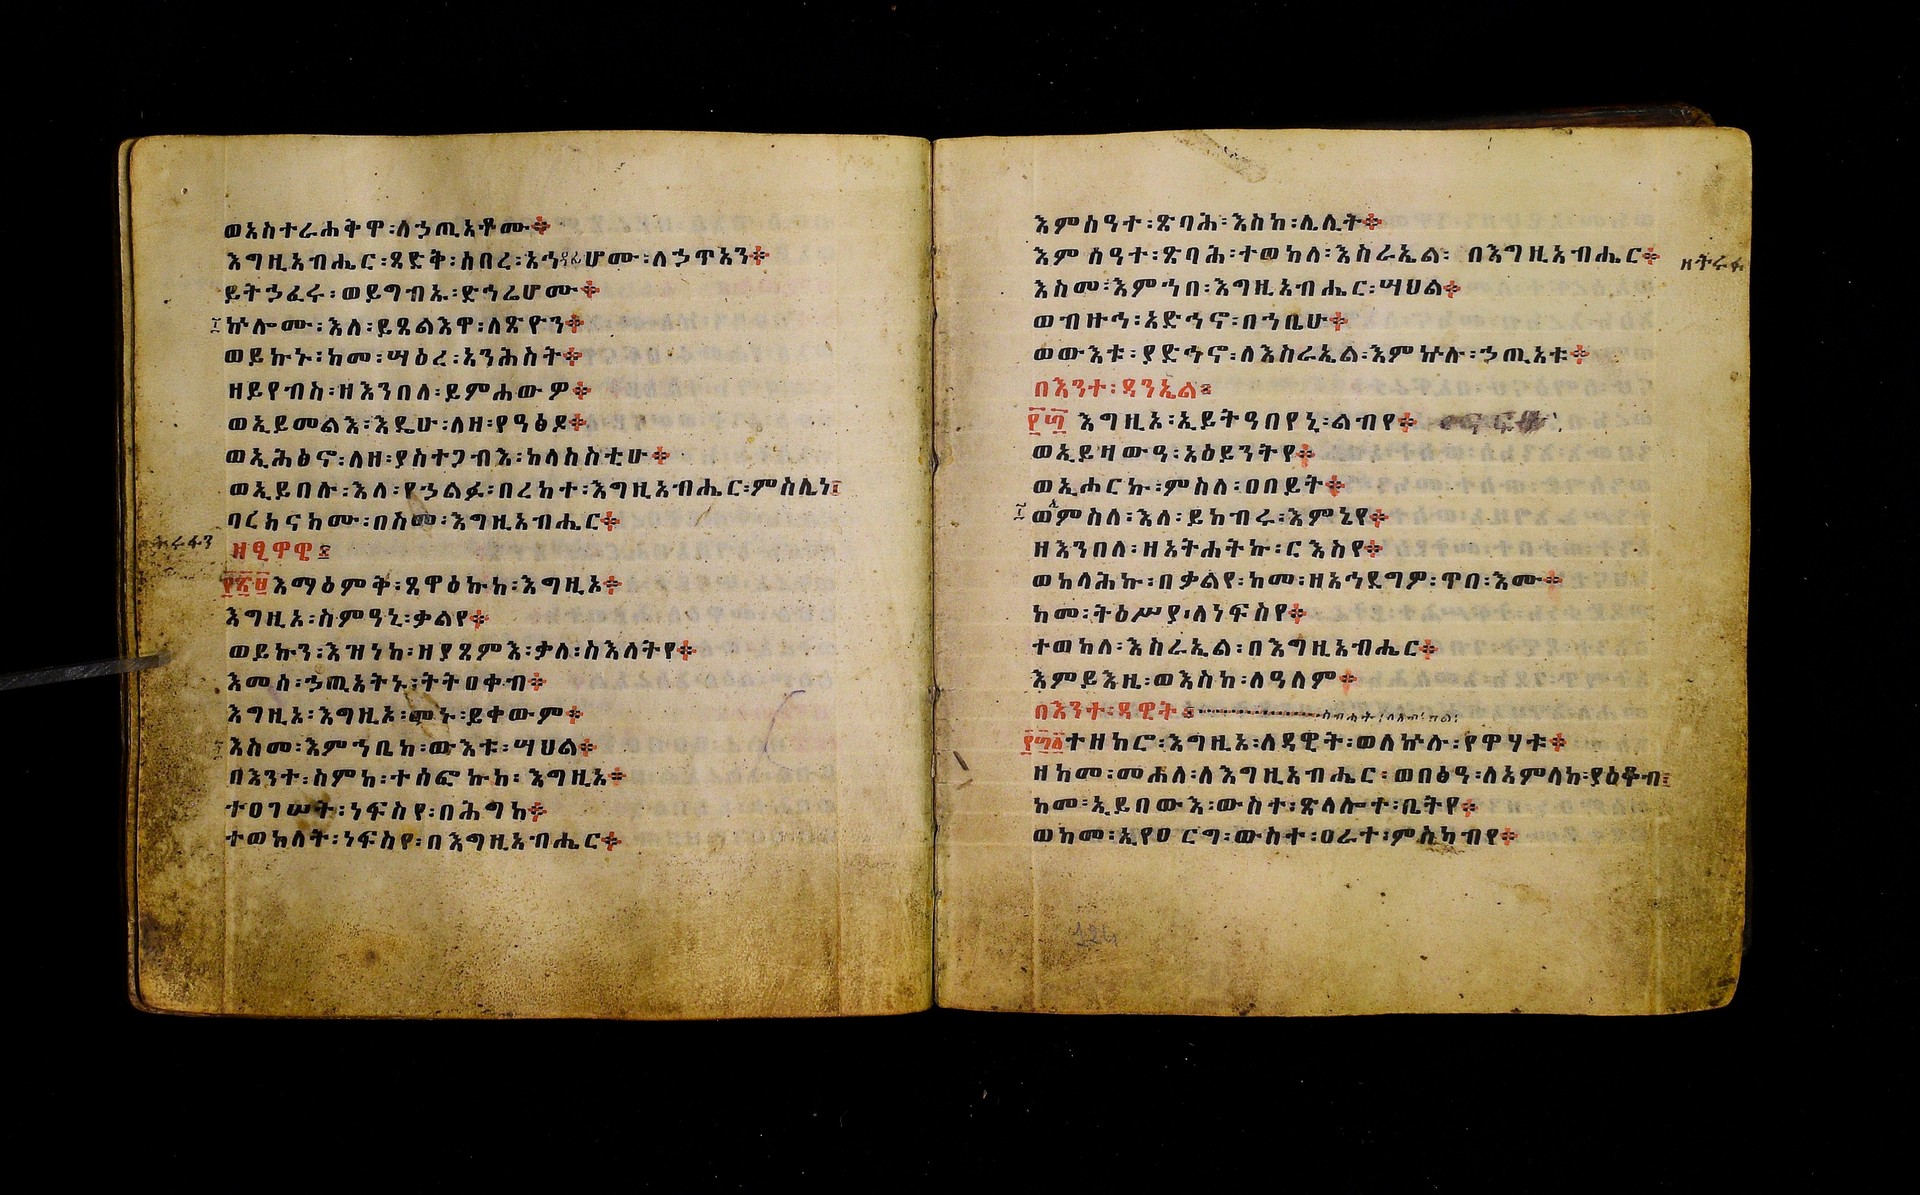 ወአስተራሐቅዋ፡ለኃጢአቶሙ፨
እግዚአብሔር፡ጻድቅ፡ሰበረ፡አኅዳፊሆሙ፡ለኃጥአን፨
ይትኃፈሩ፡ወይግብኡ፡ድኅሬሆሙ፨
ኵሎሙ፡እለ፡ይጸልእዋ፡ለጽዮን፨
ወይኩኑ፡ከመ፡ሣዕረ፡አንሕስት፨
ዘይየብስ፡ዘእንበለ፡ይምሐውዎ፨
ወኢይመልእ፡እዴሁ፡ለዘ፡የዓፅዶ፨
ወኢሕፅኖ፡ለዘ፡ያስተጋብእ፡ከላስስቲሁ፨
ወኢይበሉ፡እለ፡የኃልፉ፡በረከተ፡እግዚአብሔር፡ምስሌነ፤
ባረክናክሙ፡በስመ፡እግዚአብሔር፨
ዘፂዋዊ፤
፻፳፱እማዕምቅ፡ጸዋዕኩከ፡እግዚኦ፨
እግዚአ፡ስምዓኒ፡ቃልየ፨
ወይኩን፡እዝነከ፡ዘያጸምእ፡ቃለ፡ስእለትየ፨
እመሰ፡ኃጢአትኑ፡ትትዐቀብ፨
እግዚአ፡እግዚኦ፡መኑ፡ይቀውም፨
እስመ፡እምኀቤከ፡ውእቱ፡ሣህል፨
በእንተ፡ስምከ፡ተሰፎኩከ፡እግዚኦ፨
ተዐገሠት፡ነፍስየ፡በሕግከ፨
ተወከለት፡ነፍስየ፡በእግዚአብሔር፨
እምሰዓተ፡ጽባሕ፡እስከ፡ሌሊት፨
እምሰዓተ፡ጽባሕ፡ተወከለ፡እስራኤል፡በእግዚአብሔር፨
እስመ፡እምኀበ፡እግዚአብሔር፡ሣህል፨
ወብዙኅ፡አድኅኖ፡በኀቤሁ፨
ወውእቱ፡ያድኅኖ፡ለእስራኤል፡እምኵሉ፡ኃጢአቱ፨
በእንተ፡ዳንኤል፤
፻፴እግዚኦ፡ኢይትዓበየኒ፡ልብየ፨
ወኢይዛውዓ፡አዕይንትየ፨
ወኢሖርኩ፡ምስለ፡ዐበይት፨
ወምስለ፡እለ፡ይከብሩ፡እምኔየ፨
ዘእንበለ፡ዘአትሐትኩ፡ርእስየ፨
ወከላሕኩ፡በቃልየ፡ከመ፡ዘአኅደግዎ፡ጥበ፡እሙ፨
ከመ፡ትዕሥያ፡ለነፍስየ፨
ተወከለ፡እስራኤል፡በእግዚአብሔር፨
እምይእዜ፡ወእስከ፡ለዓለም፨
በእንተ፡ዳዊት፤
፻፴፩ተዘከሮ፡እግዚኦ፡ለዳዊት፡ወለኵሉ፡የዋሃቱ፨
ዘከመ፡መሐለ፡ለእግዚአብሔር፡ወበፅዓ፡ለአምላከ፡ያዕቆብ፤
ከመ፡ኢይበውእ፡ውስተ፡ጽላሎተ፡ቤትየ፨
ወከመ፡ኢየዐርግ፡ውስተ፡ዐራተ፡ምስካብየ፨
124